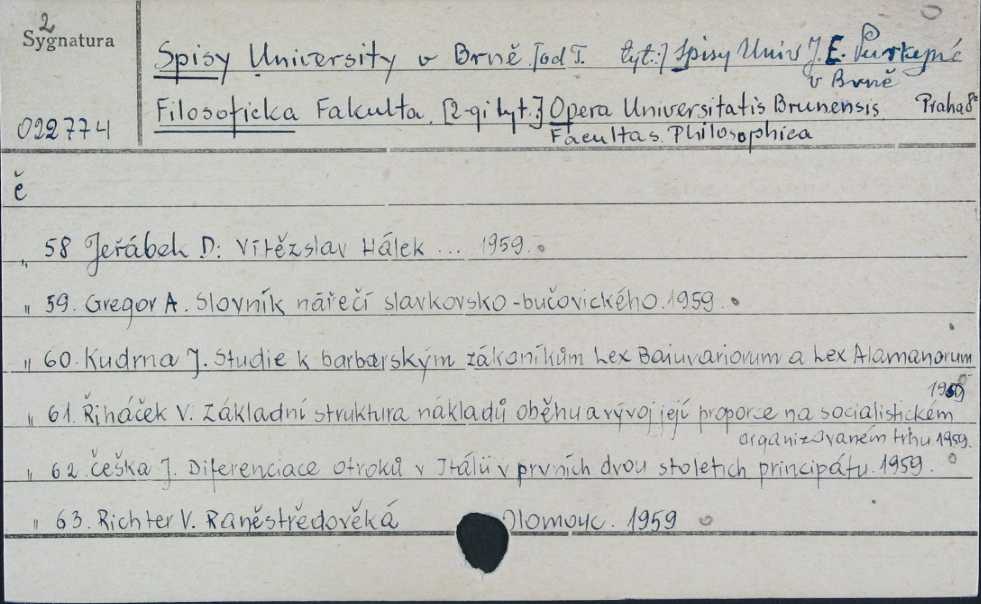 2
Sygnatura
022774
Spisy University v Brně. [od T. tyt.:] Spisy Univ J. E. Purkyně
v Brně
Filosoficka Fakulta. [2-gi tyt.:] Opera Universitatis Brunensis Praha 8°
Facultas. Philosophica
č
„ 58 Jeřábek D: Vítězslav Hálek ... 1959.
„ 59. Gregor A. Slovník nářečí slavkovsko-bučovického. 1959.
„ 60. Kudrna J. Studie k barbarským zákoníkům Lex Baiuvariorum a Lex Alamanorum
1959
„ 61. Řiháček V. Základní struktura nákladů oběhu a vývoj její proporce na socialistickém
organizovaném trhu 1959.
„ 62. Češka J. Diferenciace otroků v Itálii v prvních dvou stoletich principátu. 1959.
„ 63. Richter V. Raněstředověká Olomouc. 1959